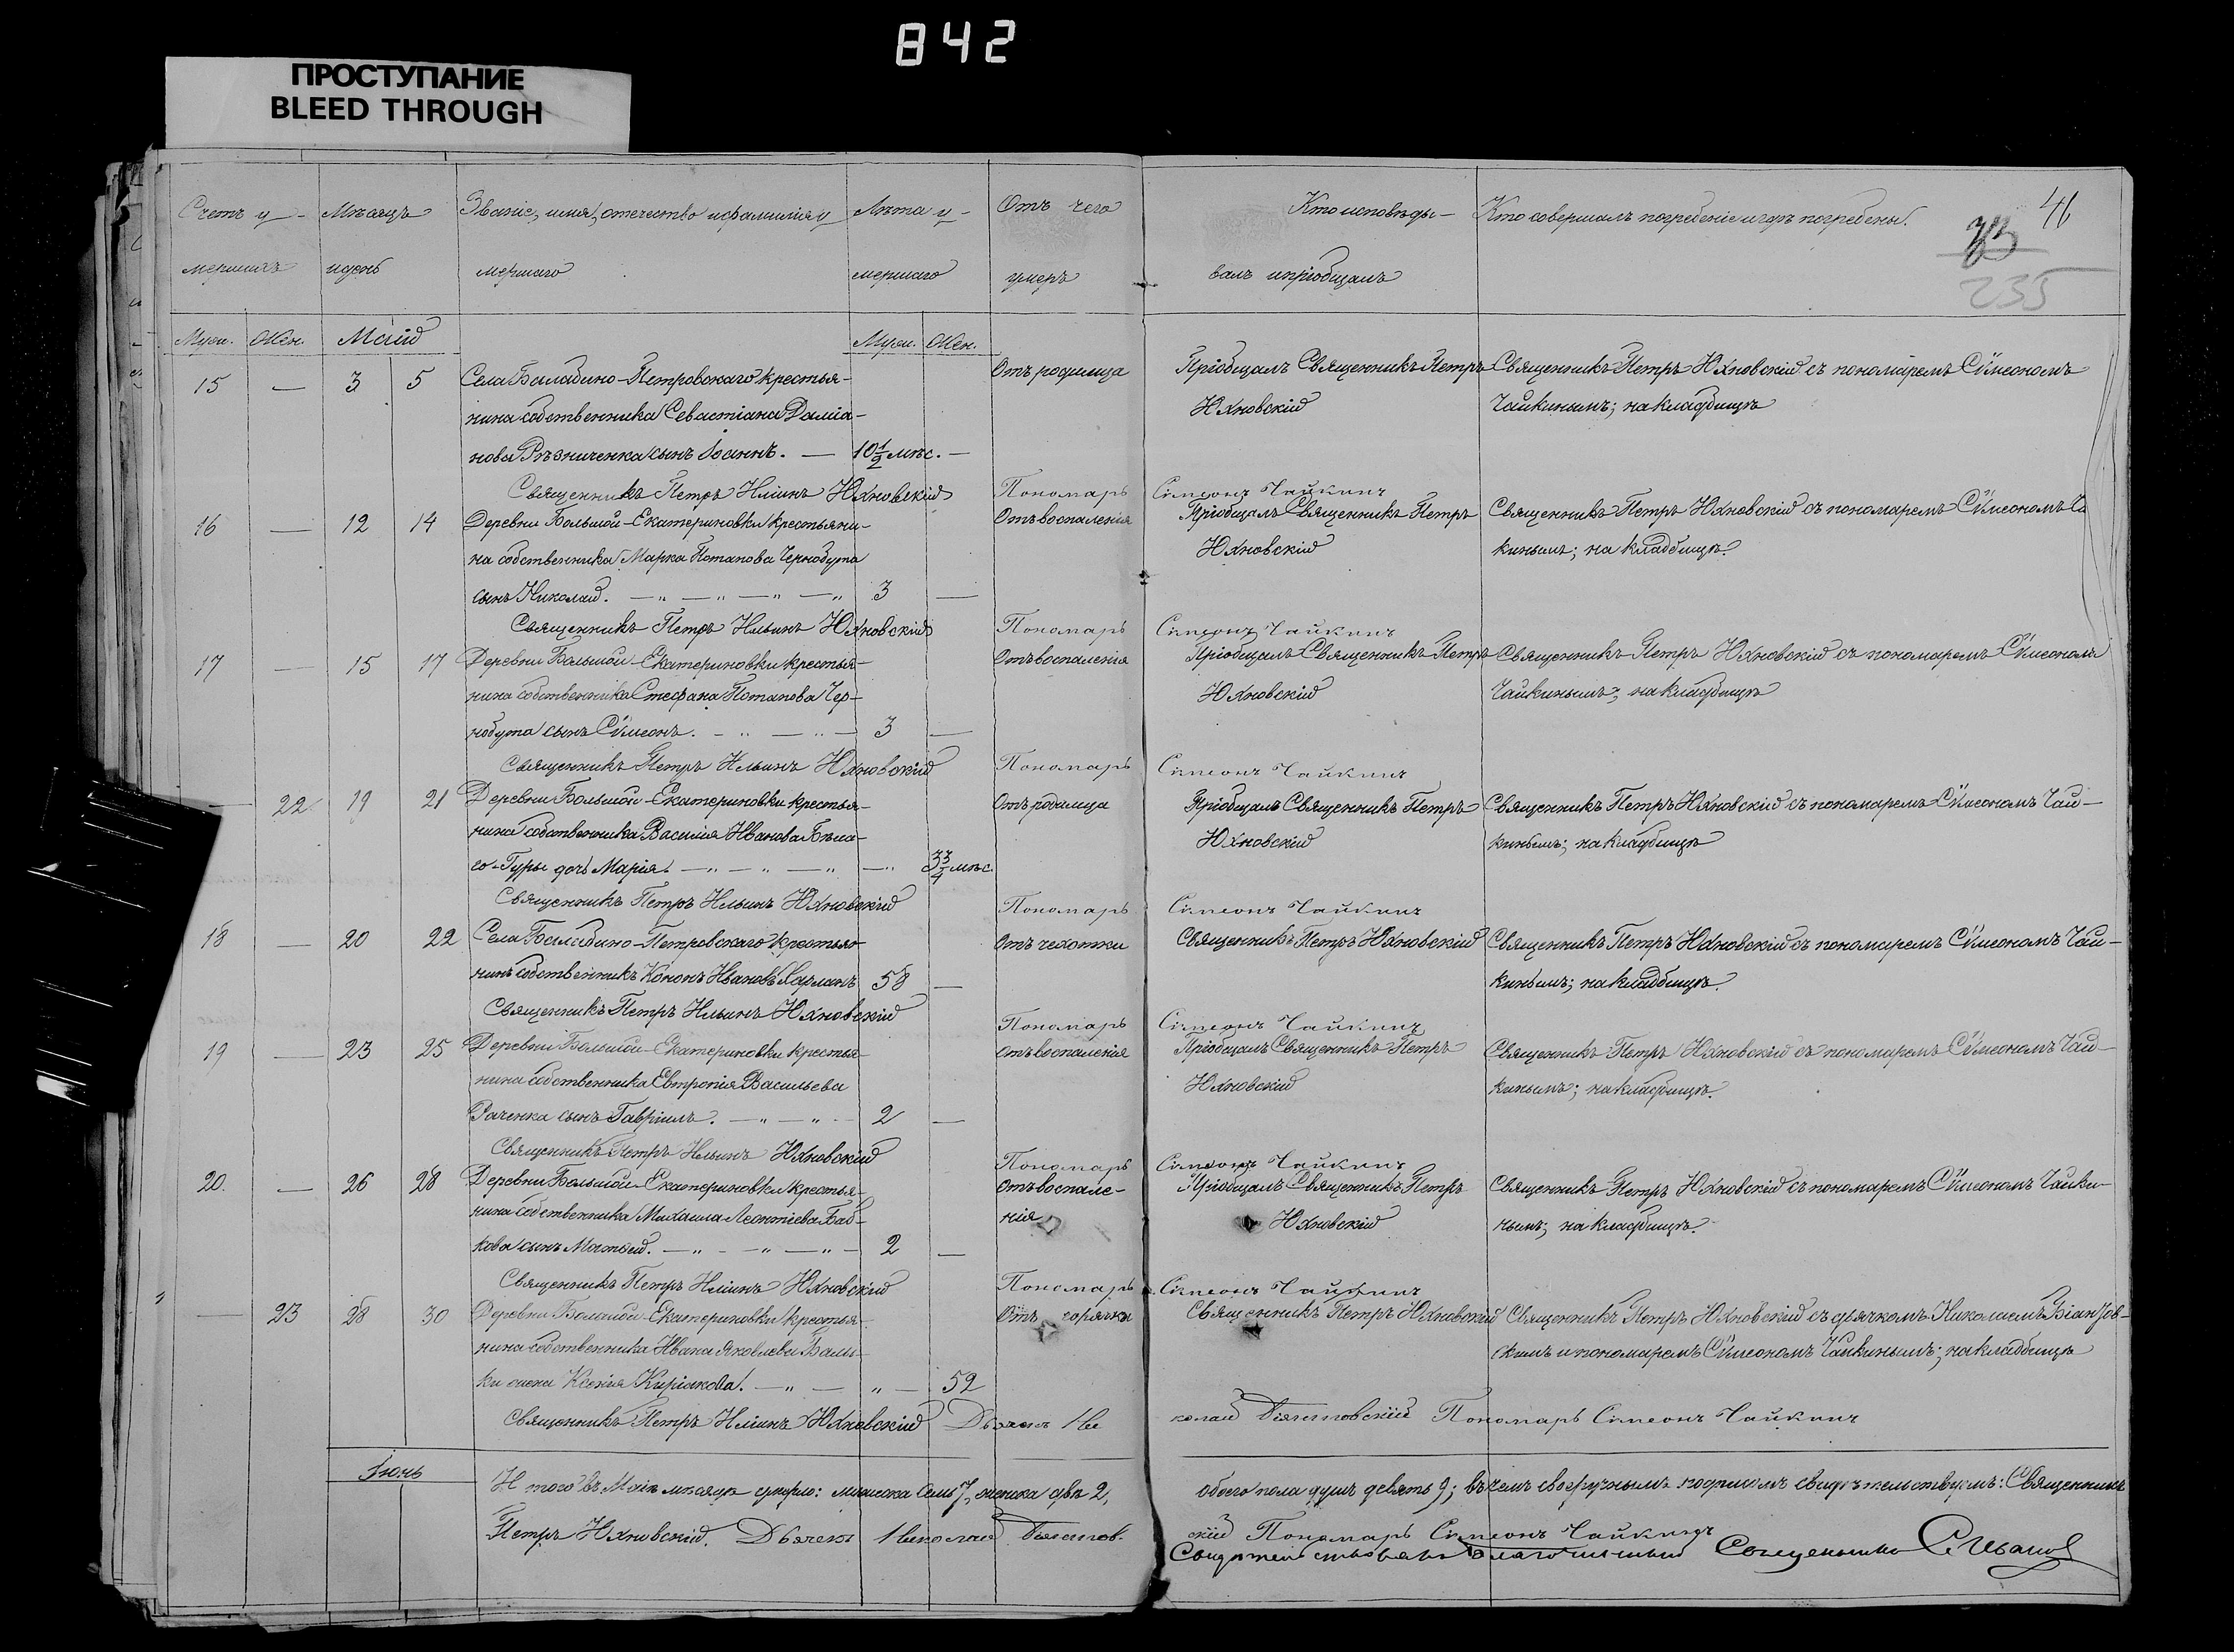 842
ПРОСТУПАНИЕ
BLEED THROUGH
46
235
Счетъ у- Мѣсяцъ Званіе, имя, отечество и фамилія у Лѣта у- Отъ чего Кто исповѣды- Кто совершалъ погребеніе и гдѣ погребены.
мершихъ и день мершаго мершаго умеръ валъ и пріобщалъ
Муж. Жен. Маій Муж. Жен.
15 — 3 5 Села Балабино-Петровскаго крестья- Отъ родимца Пріобщалъ Священникъ Петръ Священникъ Петръ Юхновскій съ пономаремъ Сѵмеономъ
нина собственника Севастіана Даміа- Юхновскій Чайкинымъ; на кладбищѣ
нова Рѣзниченка сынъ Іоаннъ. — 10 1/2 мѣс. —
Священникъ Петръ Ильинъ Юхновскій Пономарь Симеонъ Чайкинъ
16 — 12 14 Деревни Большой-Екатериновки крестьяни- Отъ воспаленія Пріобщалъ Священникъ Петръ Священникъ Петръ Юхновскій съ пономаремъ Сѵмеономъ Ча
на собственника Марка Потапова Чернобута Юхновскій кинымъ; на кладбищѣ.
сынъ Николай. — „ — „ — „ — „ 3 —
Священникъ Петръ Ильинъ Юхновскій Пономарь Симеонъ Чайкинъ
17 — 15 17 Деревни Большой-Екатериновки крестья- Отъ воспаленія Пріобщалъ Священникъ Петръ Священникъ Петръ Юхновскій съ пономаремъ Сѵмеономъ
нина собственника Стефана Потапова Чер- Юхновскій Чайкинымъ; на кладбищѣ
нобута сынъ Сѵмеонъ. — „ — „ — 3 —
Священникъ Петръ Ильинъ Юхновскій Пономарь Симеонъ Чайкинъ
— 22 19 21 Деревни Большой-Екатериновки крестья- Отъ родимца Пріобщалъ Священникъ Петръ Священникъ Петръ Юхновскій съ пономаремъ Сѵмеономъ Чай-
нина собственника Василія Иванова Бѣла- Юхновскій кинымъ; на кладбищѣ
го-Гуры дочь Марія. — „ — „ — „ — „ 3 3/4 мѣс.
Священникъ Петръ Ильинъ Юхновскій Пономарь Симеонъ Чайкинъ
18 — 20 22 Села Балабино-Петровскаго крестья- Отъ чахотки Священникъ Петръ Юхновскій Священникъ Петръ Юхновскій съ пономаремъ Сѵмеономъ Чай-
нинъ собственникъ Кононъ Ивановъ Харланъ 58 — кинымъ; на кладбищѣ.
Священникъ Петръ Ильинъ Юхновскій Пономарь Симеонъ Чайкинъ
19 — 23 25 Деревни Большой-Екатериновки крестья- Отъ воспаленія Пріобщалъ Священникъ Петръ Священникъ Петръ Юхновскій съ пономаремъ Сѵмеономъ Чай-
нина собственника Евтропія Васильева Юхновскій кинымъ; на кладбищѣ.
Раченка сынъ Гавріилъ. — „ — „ — 2 —
Священникъ Петръ Ильинъ Юхновскій Пономарь Симеонъ Чайкинъ
20. — 26 28 Деревни Большой-Екатериновки крестья- Отъ воспале- Пріобщалъ Священникъ Петръ Священникъ Петръ Юхновскій съ пономаремъ Сѵмеономъ Чайки-
нина собственника Михаила Леонтіева Баб- нія Юхновскій нымъ; на кладбищѣ.
кова сынъ Матвій. — „ — „ — „ — 2 —
Священникъ Петръ Ильинъ Юхновскій Пономарь Симеонъ Чайкинъ
— 23 28 30 Деревни Большой-Екатериновки крестья- Отъ горячки Священникъ Петръ Юхновскій Священникъ Петръ Юхновскій съ дьячкомъ Николаемъ
нина собственника Ивана Яковлева скимъ и пономаремъ Сѵмеономъ Чайкинымъ; на кладбищѣ
ки жена Ксенія Киріакова. — „ — „ — 52
Священникъ Петръ Ильинъ Юхновскій Дьячекъ Николай Пономарь Симеонъ Чайкинъ
Іюнь
Итого въ Маіѣ мѣсяцѣ умерло: мужеска семь 7, женска двѣ 2, обоего пола душъ девять 9; въ чемъ своеручнымъ подписомъ свидѣтельствуемъ: Священникъ
Петръ Юхновскій. Дьячекъ Николай скій Пономарь Симеонъ Чайкинъ
Свидѣтельствовалъ Благочинный Священникъ С. Ивановъ